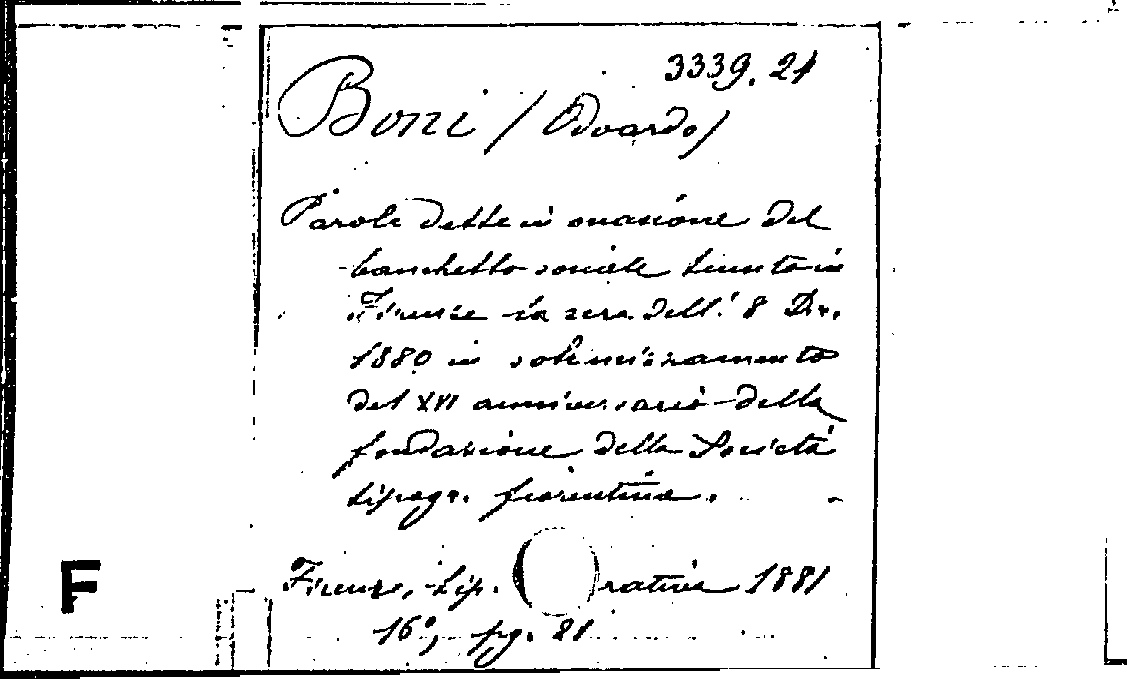 3339.21
Boni (Odoardo)
Parole dette in occasione del
banchetto sociale tenuto in
Firenze la sera dell' 8 Dic.
1880 in solennizzamento
del XVI anniversario della
fondazione della Società
tipogr. fiorentina.
Firenze, tip. rativa 1881
16°, pg. 21
F